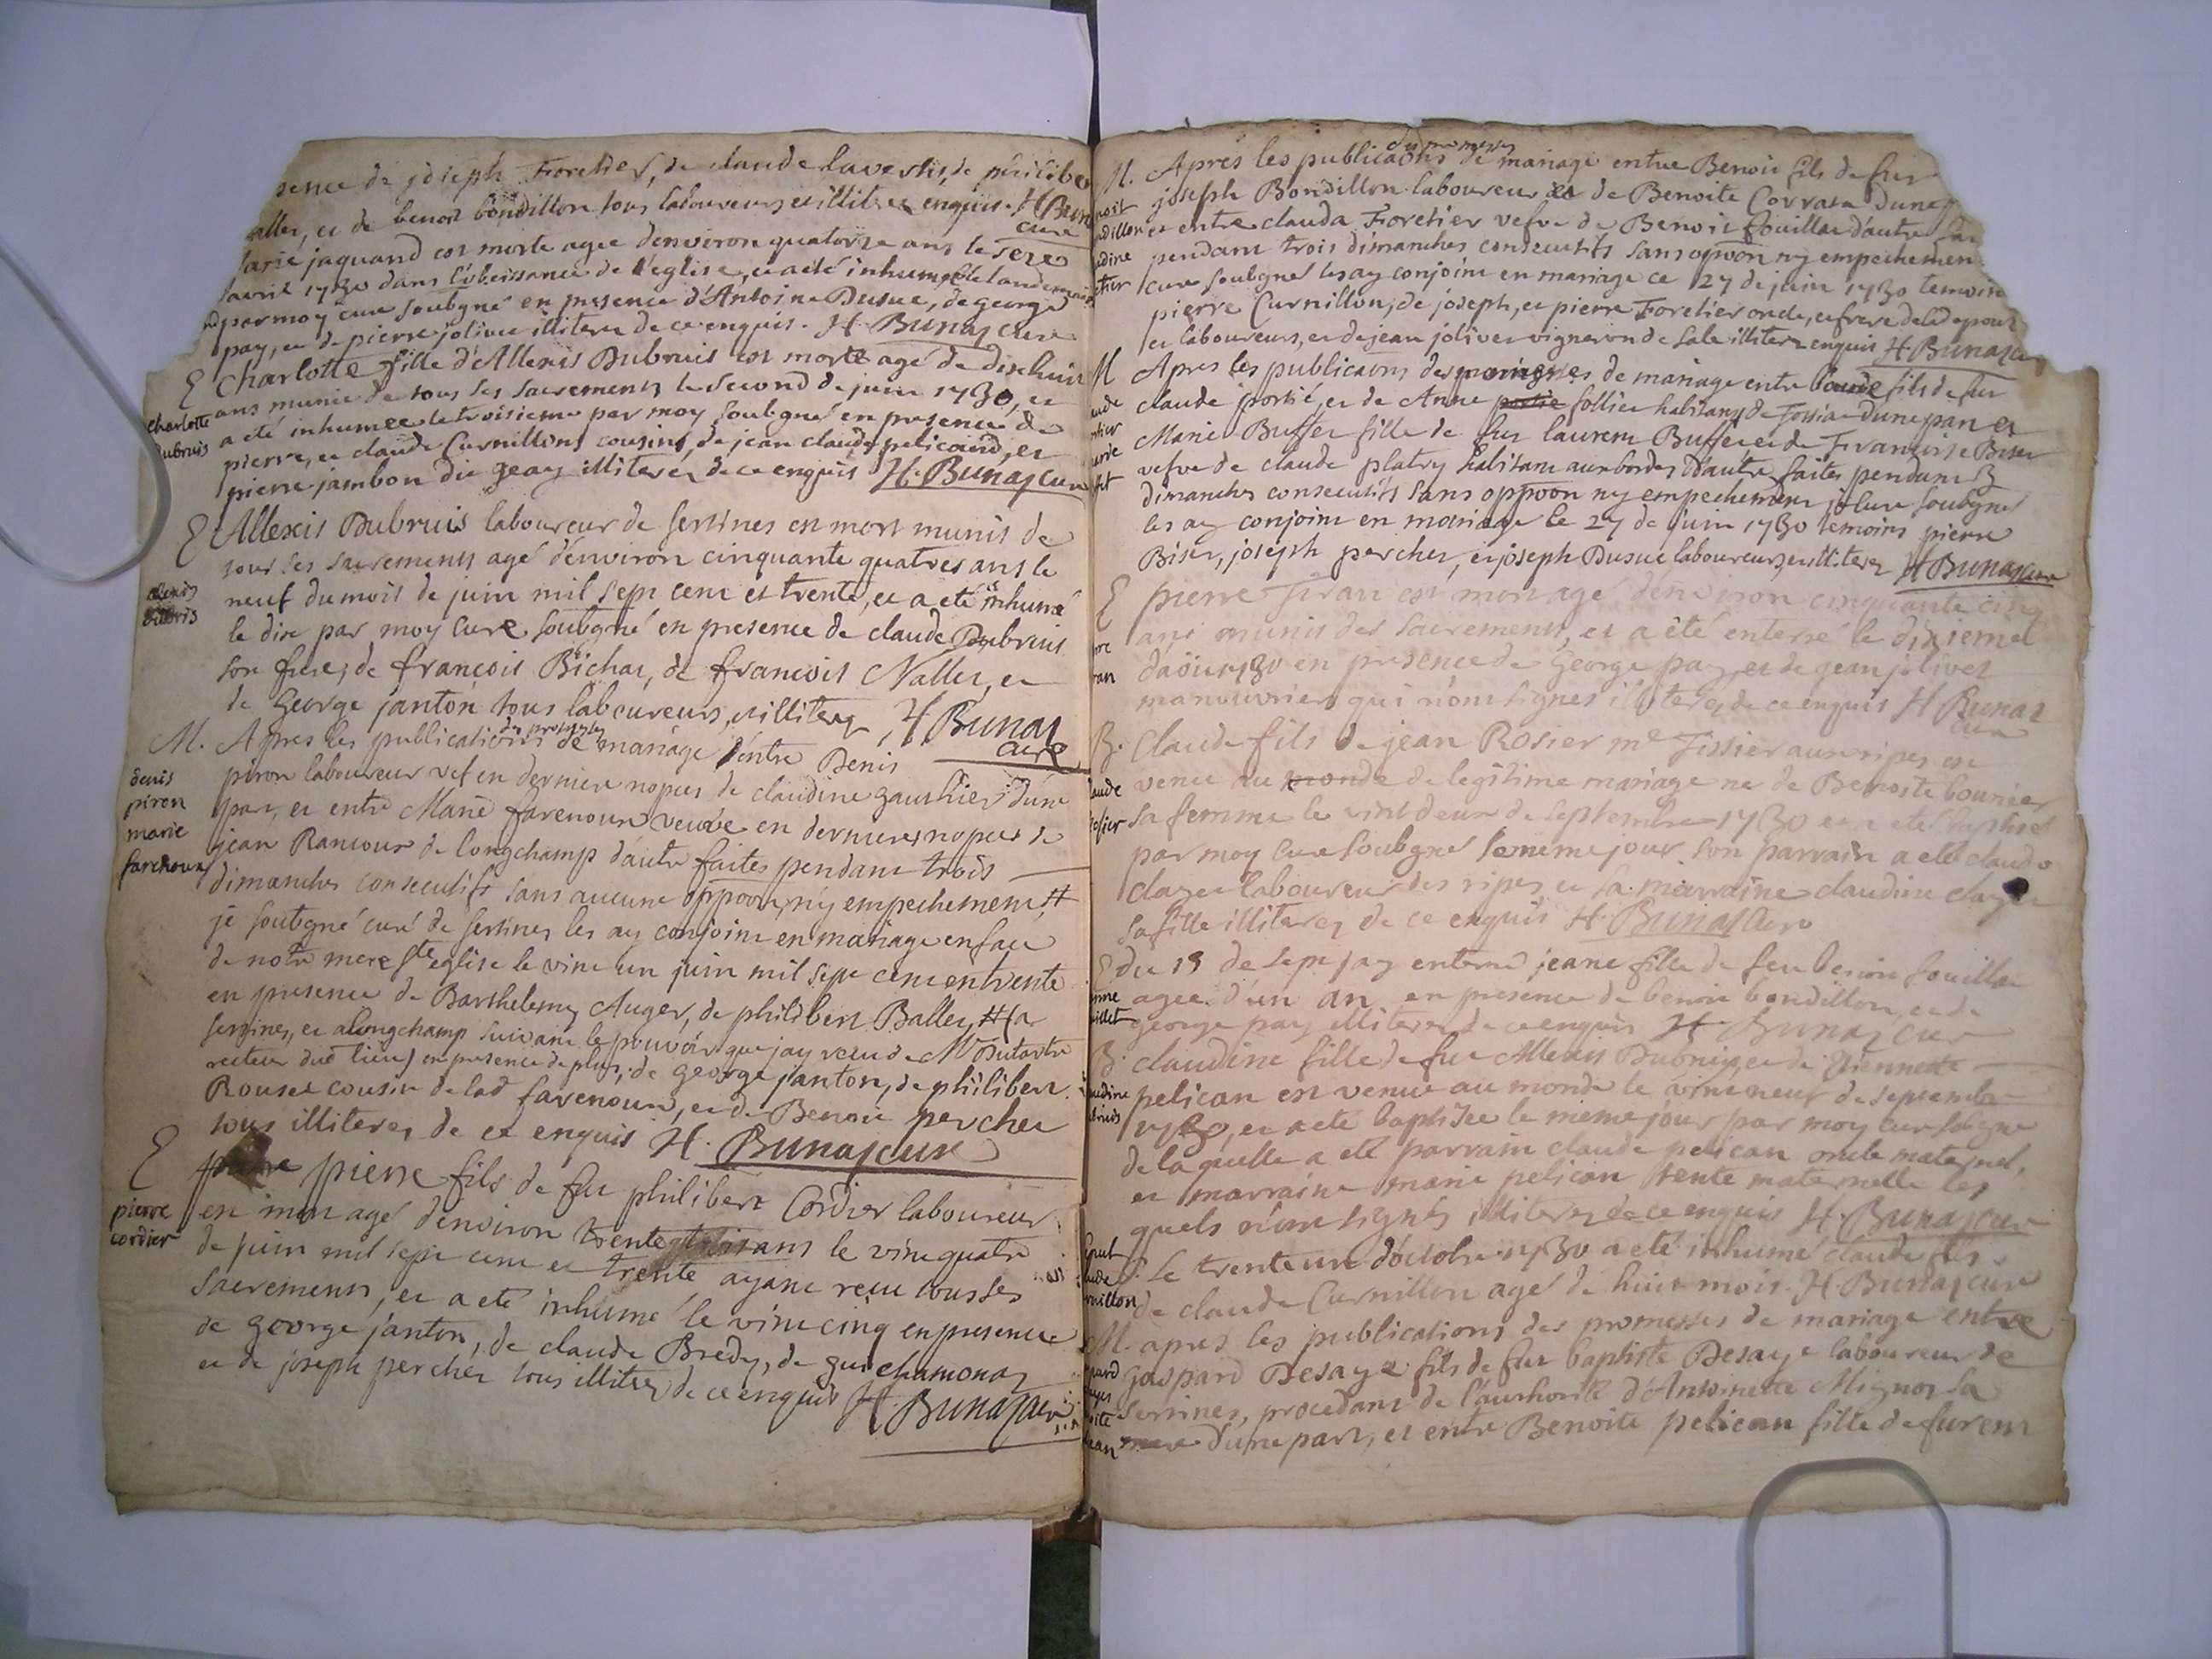 sence de joseph Foretier, de claude lavestis, de philibe
aller, et de benoit bondillon tous laboureurs et illiteres enquis. H Buna
curé
arie jaquand est morte agee d'environ quatorze ans le seze
d'avril 1730 dans l'obeissance de l'eglise, et a été inhumée le landemain
par moy curé soubgné en presence d'Antoine Dusue, de george
pay, et de pierre jolivet illiteres de ce enquis. H Bunaz curé
E Charlotte fille d'Allexis Dubruis est morte agé de dixhuit
ans munie de tous ses sacrements le second de juin 1730, et
charlotte
dubruis
a été inhumee le troisieme par moy soubgné en presence de
pierre, et claude Curnillons cousins, de jean claude pelicand, et
pierre jambon du geay illiteres de ce enquis H. Bunaz curé
E Allexis Dubruis laboureur de sersines est mort munis de
tous ses sacrements agé d'environ cinquante quatres ans le
neuf du mois de juin mil sept cent et trente, et a eté inhumé
le dix par moy curé soubgné en presence de claude Dubruis
son frere, de francois Bichat, de francois Nallet, et
de George janton tous laboureurs, et illiteres H Bunaz
curé
M. Apres les publications des promesses de mariage d'entre Denis
denis
piron
marie
farenoux
piron laboureur vef en derniere nopces de claudine gauthier d'une
part, et entre Marie farenoux veuve en dernieres nopces de
jean Rancour de longchamp d'autre faites pendant trois
dimanches consecutifs sans aucune oppoon, ny empechement #
je soubgné curé de sersines les ay conjoint en mariage en face
de notre mere ste eglise le vint un juin mil sept cent en trente
en presence de Barthelemy Auger, de philibert Ballet, #(a
sersines, et a longchamp suivant le pouvoir que jay receu de Mr Dutartre
recteur dud lieu) en presence de plus, de george janton, de philibert
Rouset cousin de lad farenoux, et de Benoit percher
tous illiteres de ce enquis H. Bunaz curé
E
pierre
cordier
pierre fils de fut philibert Cordier laboureur
est mort agé d'environ trente ans le vint quatre
de juin mil sept cent et trente ayant receu tous ses
sacrements, et a eté inhumé le vint cinq en presence
de george janton, de claude Bredy, de gui chamonaz
et de joseph percher tous illiteres de ce enquis H Bunaz curé
M. Apres les publicaons des promesses de mariage entre Benoit fils de fut
joseph Bondillon laboureur et de Benoite Corrata d'une
et entre clauda Foretier vefve de Benoit fouillat d'autre
pendant trois dimanches consecutifs sans oppoon ny empechemen
curé soubgné les ay conjoint en mariage ce 27 de juin 1730 temoins
pierre Curnillon, de joseph, et pierre Foretier oncle, et frere de lad epouse
et laboureurs, et de jean jolivet vigneron de sale illiteres enquis H. Bunaz cu
M Apres les publicaons des promesses de mariage entre claude fils de fut
claude portié, et de Anne follier habitans de Tossiat d'une part et
Marie Buffet fille de fut laurent Buffet et de Francoise Biset
vefve de claude platry habitant aux bordes d'autre faites pendant 3
dimanches consecutifs sans oppoon ny empechement je curé soubgné
les ay conjoint en mariage le 27 de juin 1730 temoins pierre
Biset, joseph percher, et joseph Dusue laboureurs et illiteres H Bunaz curé
E pierre firan est mort agé d'environ cinquante cinq
ans munis des sacrements, et a été enterré le dixieme
d'aöut 1730 en presence de George pay, et de jean jolivet
manouvriers qui n'ont signes illiteres de ce enquis H Bunaz
curé
B. Claude fils de jean Rosier me Tissier aux ripes est
venu au monde de legitime mariage né de Benoite bounier
sa femme le vint deux de septembre 1730 et a eté baptisé
par moy curé soubgné le meme jour son parrain a eté claude
clayet laboureur des ripes et sa marraine claudine clayet
sa fille illiteres de ce enquis H. Bunaz curé
E du 19 de sept jay enterré jeane fille de feu benoit fouillat
agee d'un an en presence de benoit bondillon, et de
george pay illiteres de ce enquis H Bunaz curé
B. claudine fille de fut Allexis Dubruis, et de Etiennette
pelican est venue au monde le vint neuf de septembre
1730, et a eté baptisee le meme jour par moy curé sbgne
de laquelle a eté parrain claude pelican oncle maternel,
et marraine marie pelican tente maternelle les
quels n'ont signés illiteres de ce enquis H. Bunaz curé
E. Le trente un d'octobre 1730 a eté inhumé claude fils
de claude Curnillon agé de huit mois H. Bunaz curé
M. apres les publications des promesses de mariage entre
gaspard Desaye fils de fut baptiste Desaye laboureur de
sersines, procedant de l'authorité d'Antoinette Mignot sa
mere d'une part, et entre Benoite pelican fille de furent